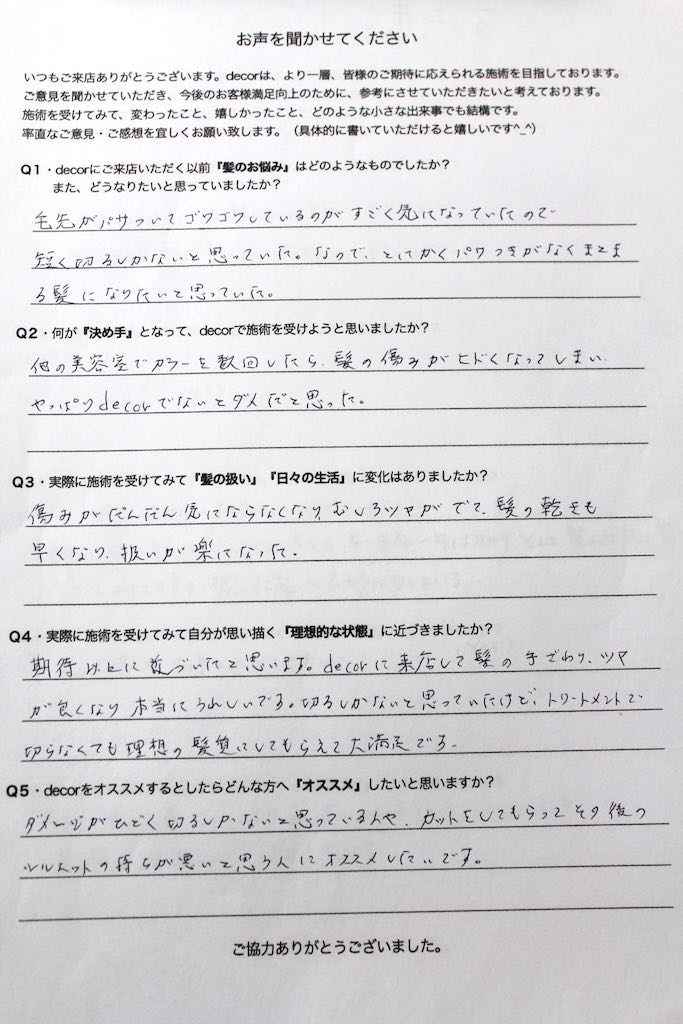 お声を聞かせてください
いつもご来店ありがとうございます。decorは、より一層、皆様のご期待に応えられる施術を目指しております。
ご意見を聞かせていただき、今後のお客様満足向上のために、参考にさせていただきたいと考えております。
施術を受けてみて、変わったこと、嬉しかったこと、どのような小さな出来事でも結構です。
率直なご意見・ご感想を宜しくお願い致します。（具体的に書いていただけると嬉しいです^_^）
Q1・decorにご来店いただく以前『髪のお悩み』はどのようなものでしたか？
また、どうなりたいと思っていましたか？
毛先がパサついてゴワゴワしているのがすごく気になっていたので
短く切るしかないと思っていた。なので、とにかくパサつきがなくまとま
る髪になりたいと思っていた。
Q2・何が『決め手』となって、decorで施術を受けようと思いましたか？
他の美容室でカラーを数回したら、髪の傷みがヒドくなってしまい、
やっぱりdecorでないとダメだと思った。
Q3・実際に施術を受けてみて『髪の扱い』『日々の生活』に変化はありましたか？
傷みがだんだん気にならなくなり、むしろツヤがでて、髪の乾きも
早くなり、扱いが楽になった。
Q4・実際に施術を受けてみて自分が思い描く『理想的な状態』に近づきましたか？
期待以上に近づいたと思います。decorに来店して髪の手ざわり、ツヤ
が良くなり本当にうれしいです。切るしかないと思っていたけど、トリートメントで
切らなくても理想の髪質にしてもらえて大満足です。
Q5・decorをオススメするとしたらどんな方へ『オススメ』したいと思いますか？
ダメージがひどく切るしかないと思っている人や、カットをしてもらってその後の
シルエットの持ちが悪いと思う人にオススメしたいです。
ご協力ありがとうございました。